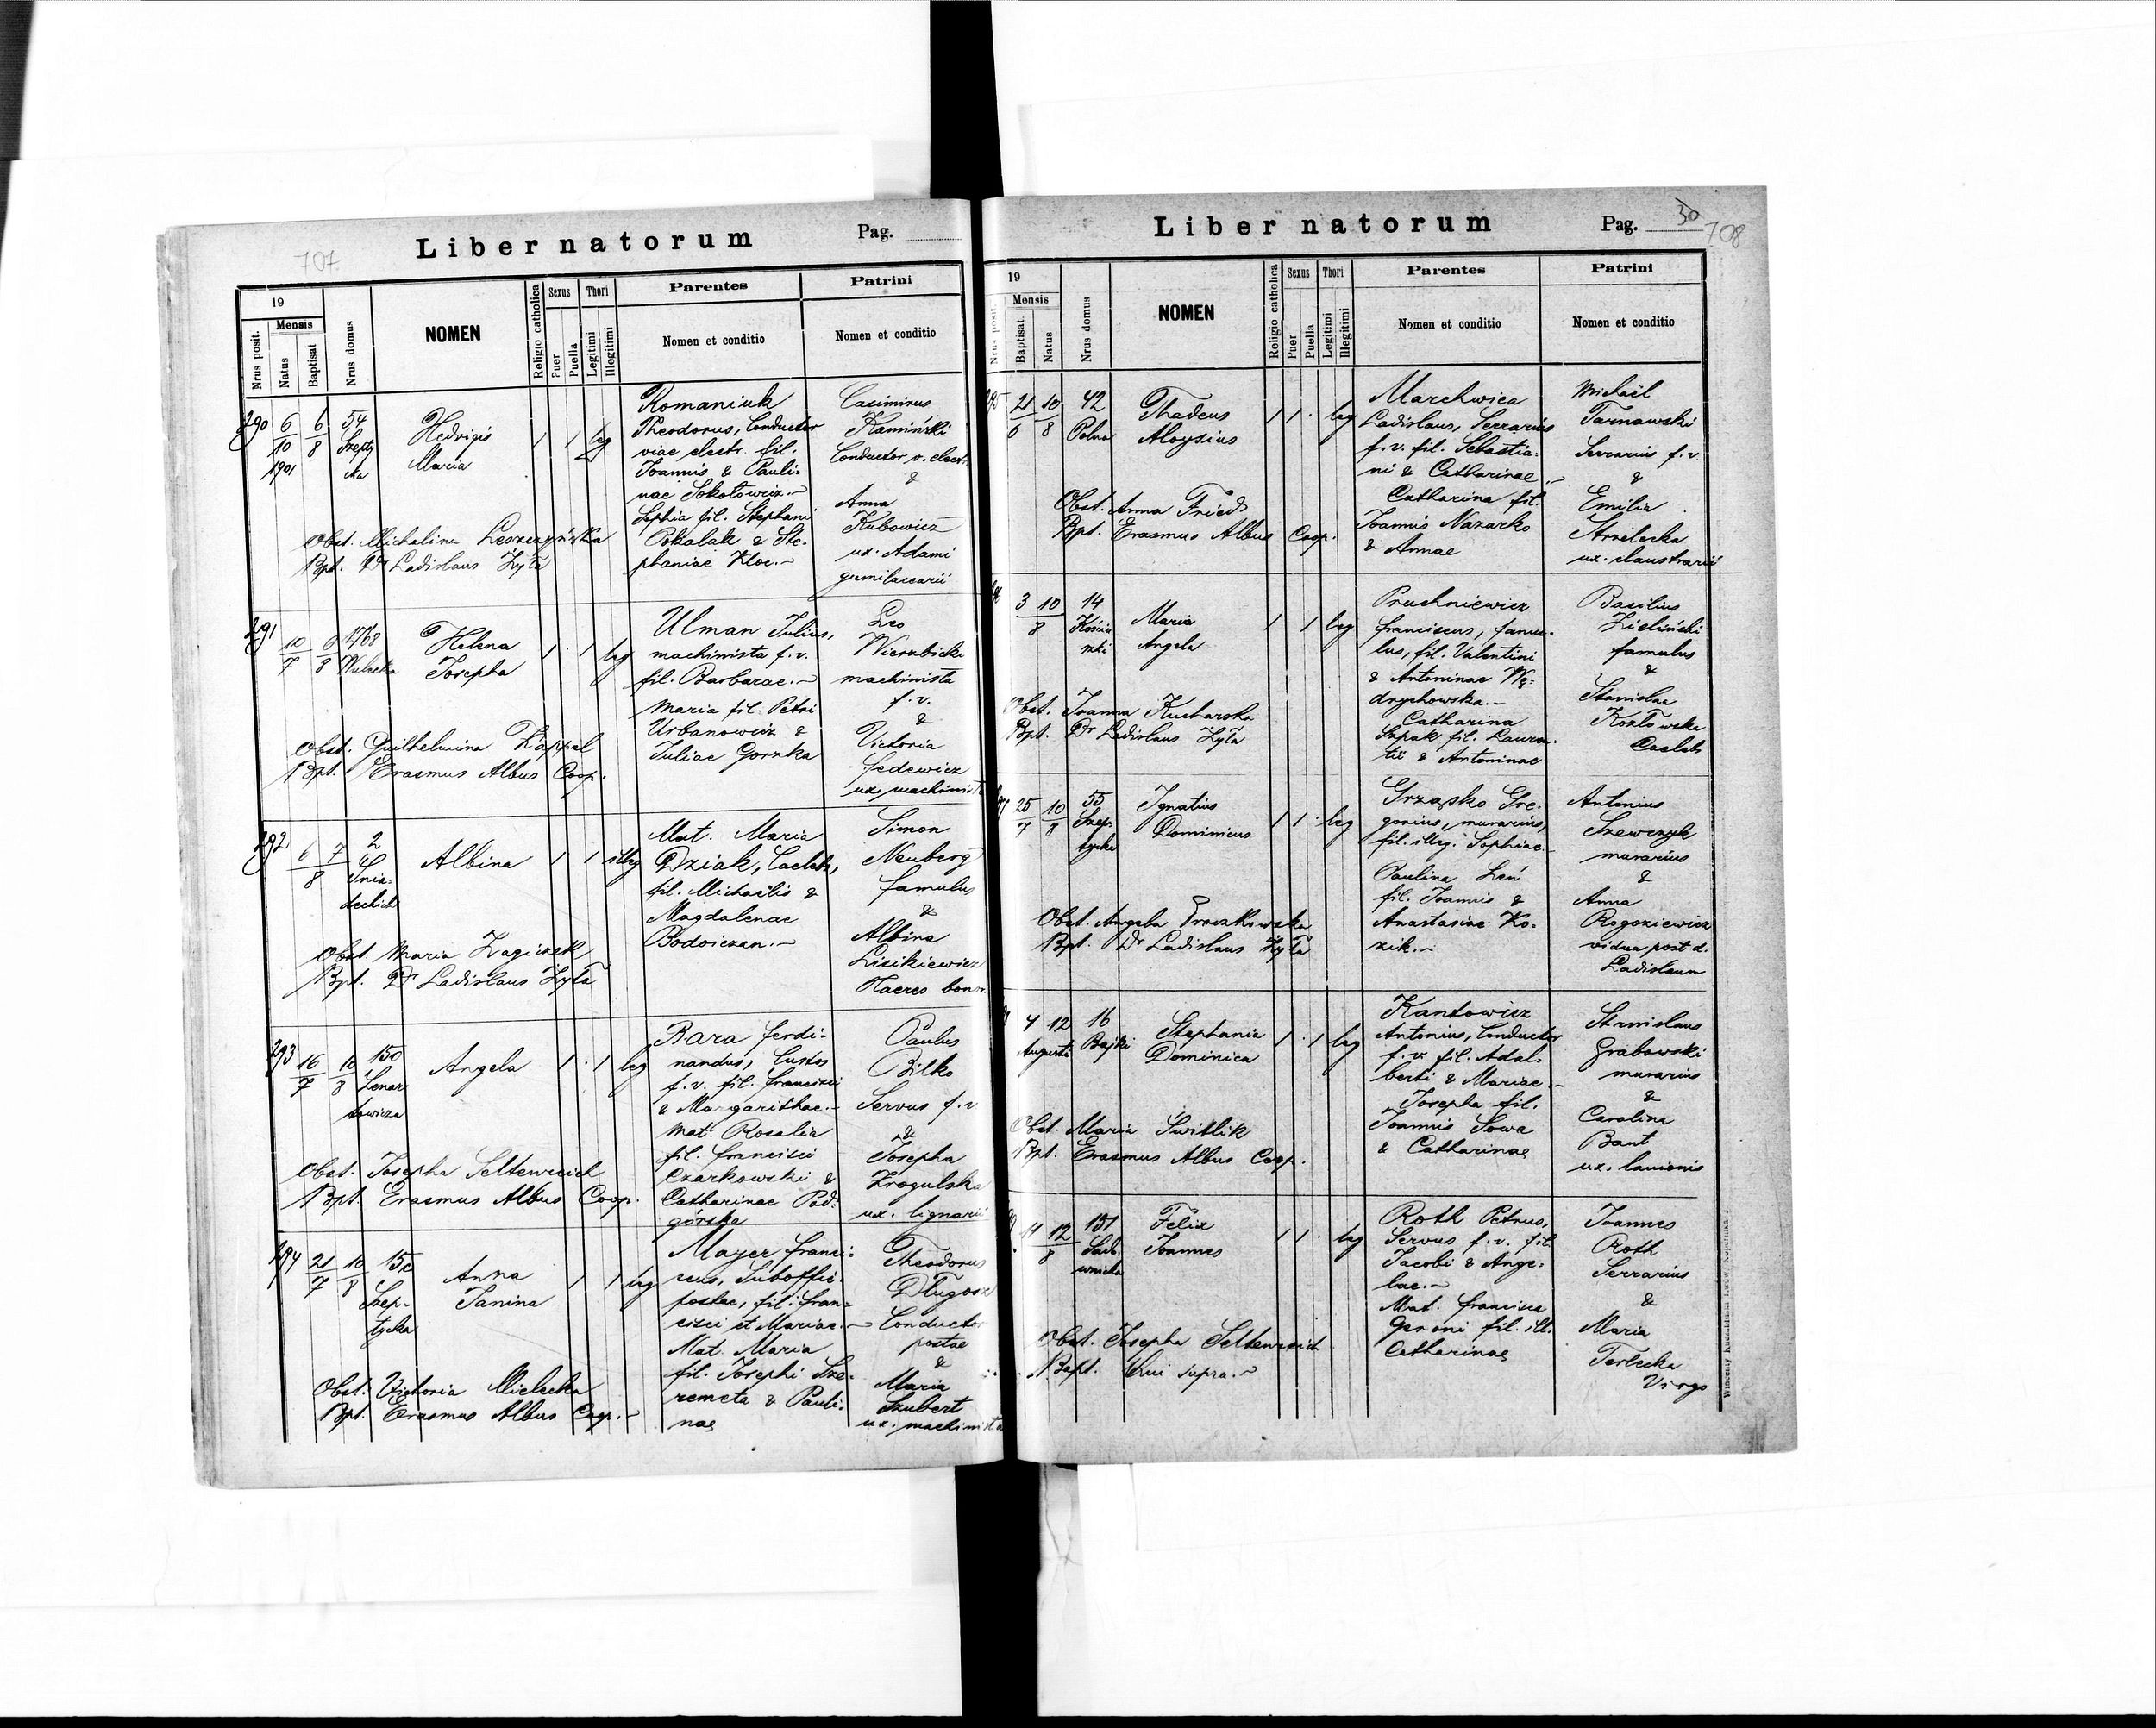 707.
Liber natorum
Pag.
19
Mensis
Nrus posit.
Natus
Baptisat
Nrus domus
NOMEN
Religio catholica
Sexus
Puer
Puella
Thori
Legitimi
Illegitimi
Parentes
Nomen et conditio
Patrini
Nomen et conditio
290 6/10 1901 6/8 54 Szepty cka
Hedvigis
Maria
1 1 leg
Romaniuk
Theodorus, Conductor
viae electr. fil.
Joannis & Pauli-
nae Sokołowicz.-
Sophia fil. Stephani
Pokalak & Ste-
phaniae Kloc.-
Casimirus
Kamiński
Conductor v. electr.
&
Anna
Kubowicz
ux. Adami
gumilaccarii
Obst. Michalina Leszczyńska
Bpt. Dr Ladislaus Żyła
291 10/7 6/8 1768 Wulecka
Helena
Josepha
1 1 leg
Ulman Julius,
machinista f.v.
fil. Barbarae.-
Maria fil. Petri
Urbanowicz &
Juliae Gorzka
Leo
Wierzbicki
machinista
f.v.
&
Victoria
Fedewicz
ux. machinista
Obst. Guilhelmina Kappel
Bpt. Erasmus Albus Coop.
292 6 7/8 2 Śnia-deckich
Albina
1 1 illeg
Mat. Maria
Dziak, Caelebs,
fil. Michaëlis &
Magdalenae
Bodoiczan.-
Simon
Neuberg
famulus
&
Albina
Lisikiewicz
Haeres bonor.
Obst. Maria Zagiczek
Bpt. Dr Ladislaus Żyła
293 16/7 10/8 150 Lenar towicza
Angela
1 1 leg
Bara Ferdi-
nandus, Custos
f.v. fil. Francisci
& Margarithae.-
Mat. Rosalia
fil. Francisci
Czarkowski &
Catharinae Pod-
górska
Paulus
Bilko
Servus f.v
&
Josepha
Zrogulska
ux. lignarii
Obst. Josepha Seltenreich
Bpt. Erasmus Albus Coop.
294 21/7 10/8 15c Szep-tycka
Anna
Janina
1 1 leg
Mayer Franci-
scus, Suboffic.
postae, fil. Fran-
cisci et Mariae.-
Mat. Maria
fil. Josephi Sze-
remeta & Pauli-
nae
Theodorus
Długosz
Conductor
postae
&
Maria
Szubert
ux. machinista
Obst. Victoria Mielecka
Bpt. Erasmus Albus Coop.-
Liber natorum
Pag. 30
708
19
Mensis
Nrus posit.
Baptisat.
Natus
Nrus domus
NOMEN
Religio catholica
Sexus
Puer
Puella
Thori
Legitimi
Illegitimi
Parentes
Nomen et conditio
Patrini
Nomen et conditio
21/6 10/8 42 Polna
Thadeus
Aloysius
1 1 leg
Marchwica
Ladislaus, Serrarius
f.v. fil. Sebastia-
ni & Catharinae.-
Catharina fil.
Joannis Nazarko
& Annae
Michaël
Tarnawski
Serrarius f.v.
&
Emilia
Strzelecka
ux. claustrarii
Obst. Anna Fried
Bpt. Erasmus Albus Coop.
3 10/8 14
Maria
Angela
1 1 leg
Pruchniewicz
Franciscus, famu-
lus, fil. Valentini
& Antoninae Wę-
drychowska.-
Catharina
Szpak fil. Lauren-
tii & Antoninae
Basilius
Zieliński
famulus
&
Stanislae
Kozłowska
Caelebs
Obst. Joanna Kucharska
Bpt. Dr Ladislaus Żyła
25/7 10/8 55 Szep-tycka
Ignatius
Dominicus
1 1 leg
Grząsko Gre-
gorius, murarius,
fil. illeg. Sophiae.-
Paulina Leń
fil. Joannis &
Anastasiae Ko-
zik.-
Antonius
Szewczyk
murarius
&
Anna
Rogoziewicz
vidua post d.
Ladislaum
Obst. Angela Proczkowska
Bpt. Dr Ladislaus Żyła
4 12 Augusti 16 Bajki
Stephania
Dominica
1 1 leg
Kantowicz
Antonius, Conductor
f.v. fil. Adal-
berti & Mariae.-
Josepha fil.
Joannis Sowa
& Catharinae
Stanislaus
Grabowski
murarius
&
Carolina
Bant
ux. lanionis
Obst. Maria Switlik
Bpt. Erasmus Albus Coop.
11 12/8 151 Sado-wnicka
Felix
Joannes
1 1 leg
Roth Petrus,
Servus f.v. fil.
Jacobi & Ange-
lae.-
Mat. Francisca
Geroni fil. ill.
Catharinae
Joannes
Roth
Serrarius
&
Maria
Terlecka
Virgo
Obst. Josepha Seltenreich
Bapt. Qui supra.-